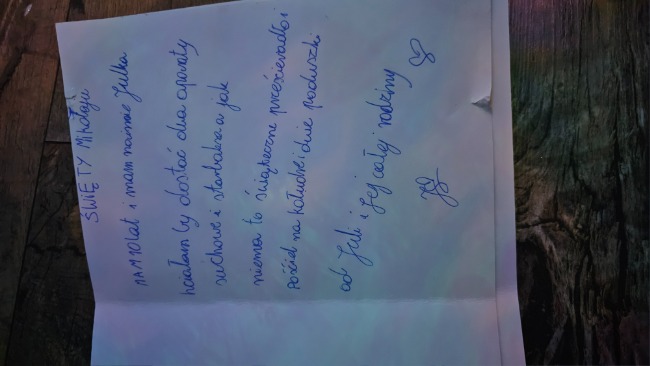 ŚWIĘTY Mikołaju
MAM 10 lat i mam na imie Julka
hciałam by dostać dwa aparaty
ruchowe i starbaksa a jak
niema to świąteczne prześcieradło i
pościel na kołudre i dwie poduszki
od Juli i jej całej rodziny